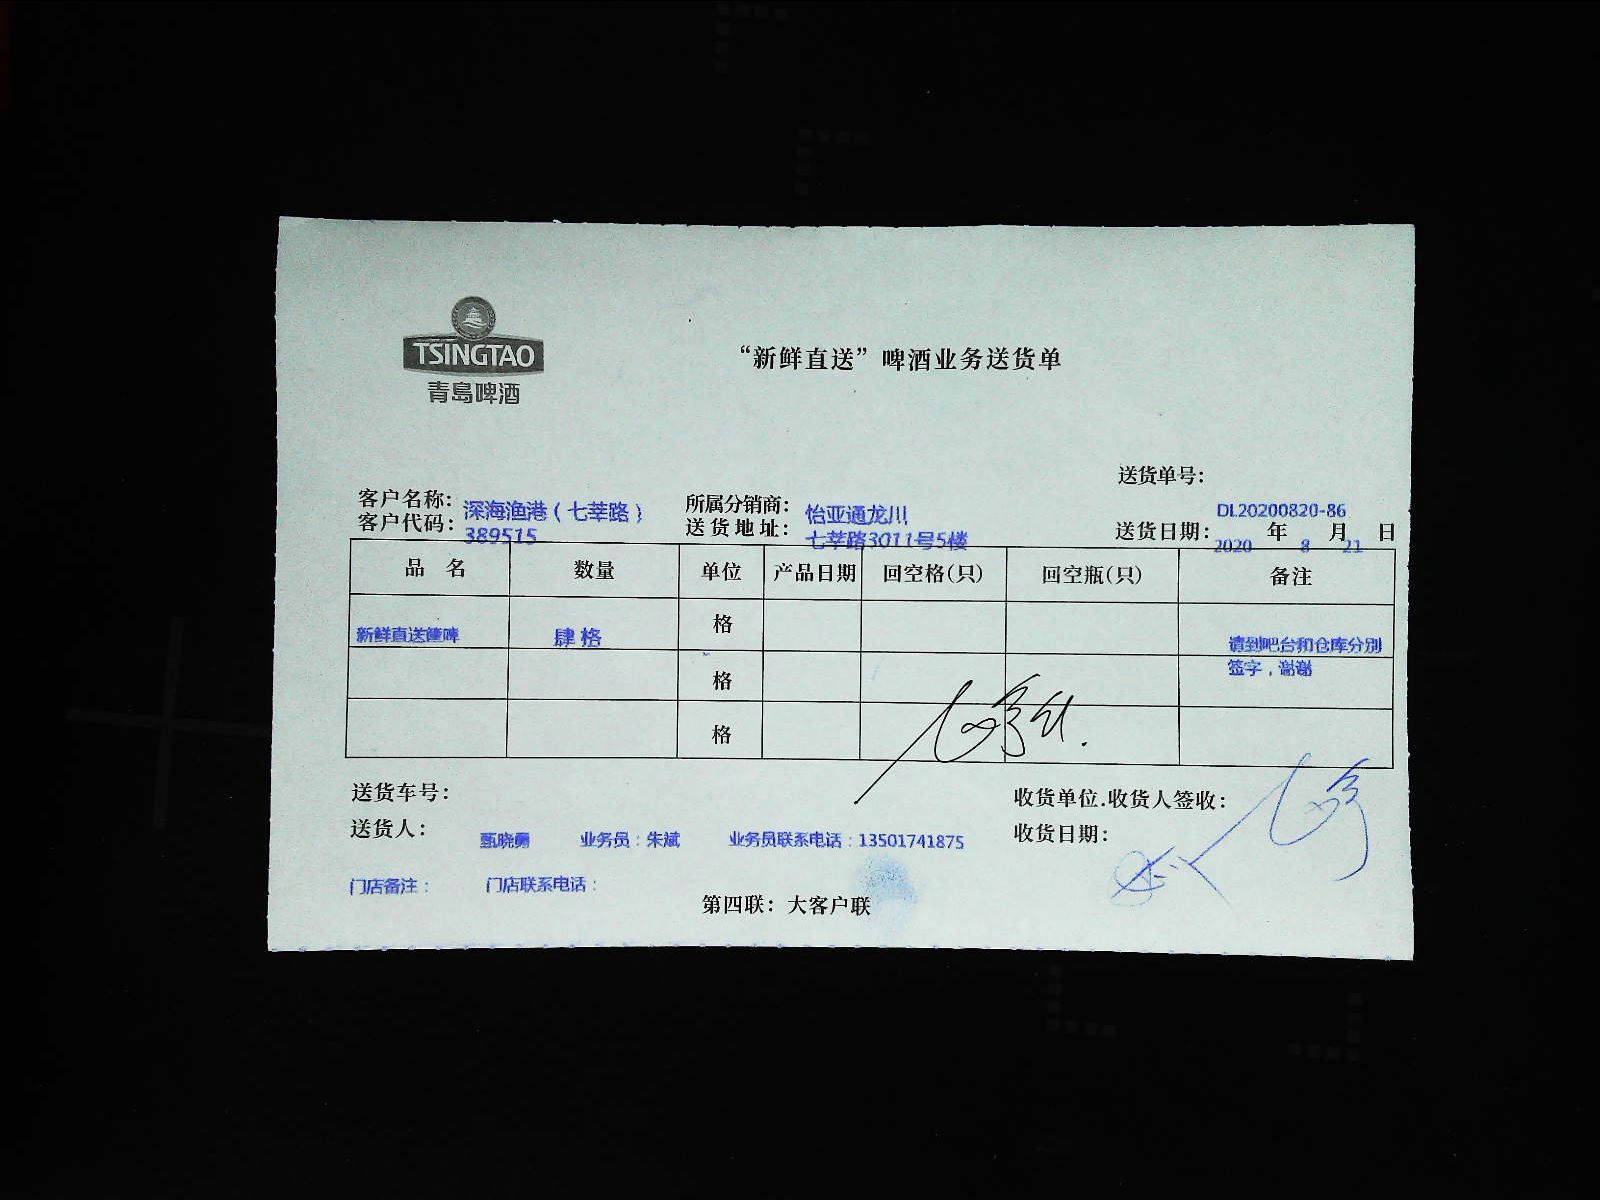 TSINGTAO
青岛啤酒
“新鲜直送”啤酒业务送货单
送货单号：
DL20200820-86
客户名称：深海渔港（七莘路） 所属分销商：怡亚通龙川
客户代码：389515 送货地址：七莘路3011号5楼 送货日期：2020 年 8 月 21 日
品 名 数量 单位 产品日期 回空格(只) 回空瓶(只) 备注
新鲜直送筐啤 肆格 格 请到吧台和仓库分别
签字，谢谢
格
格
送货车号： 收货单位.收货人签收：
送货人：甄晓勇 业务员：朱斌 业务员联系电话：13501741875 收货日期：
门店备注： 门店联系电话：
第四联：大客户联